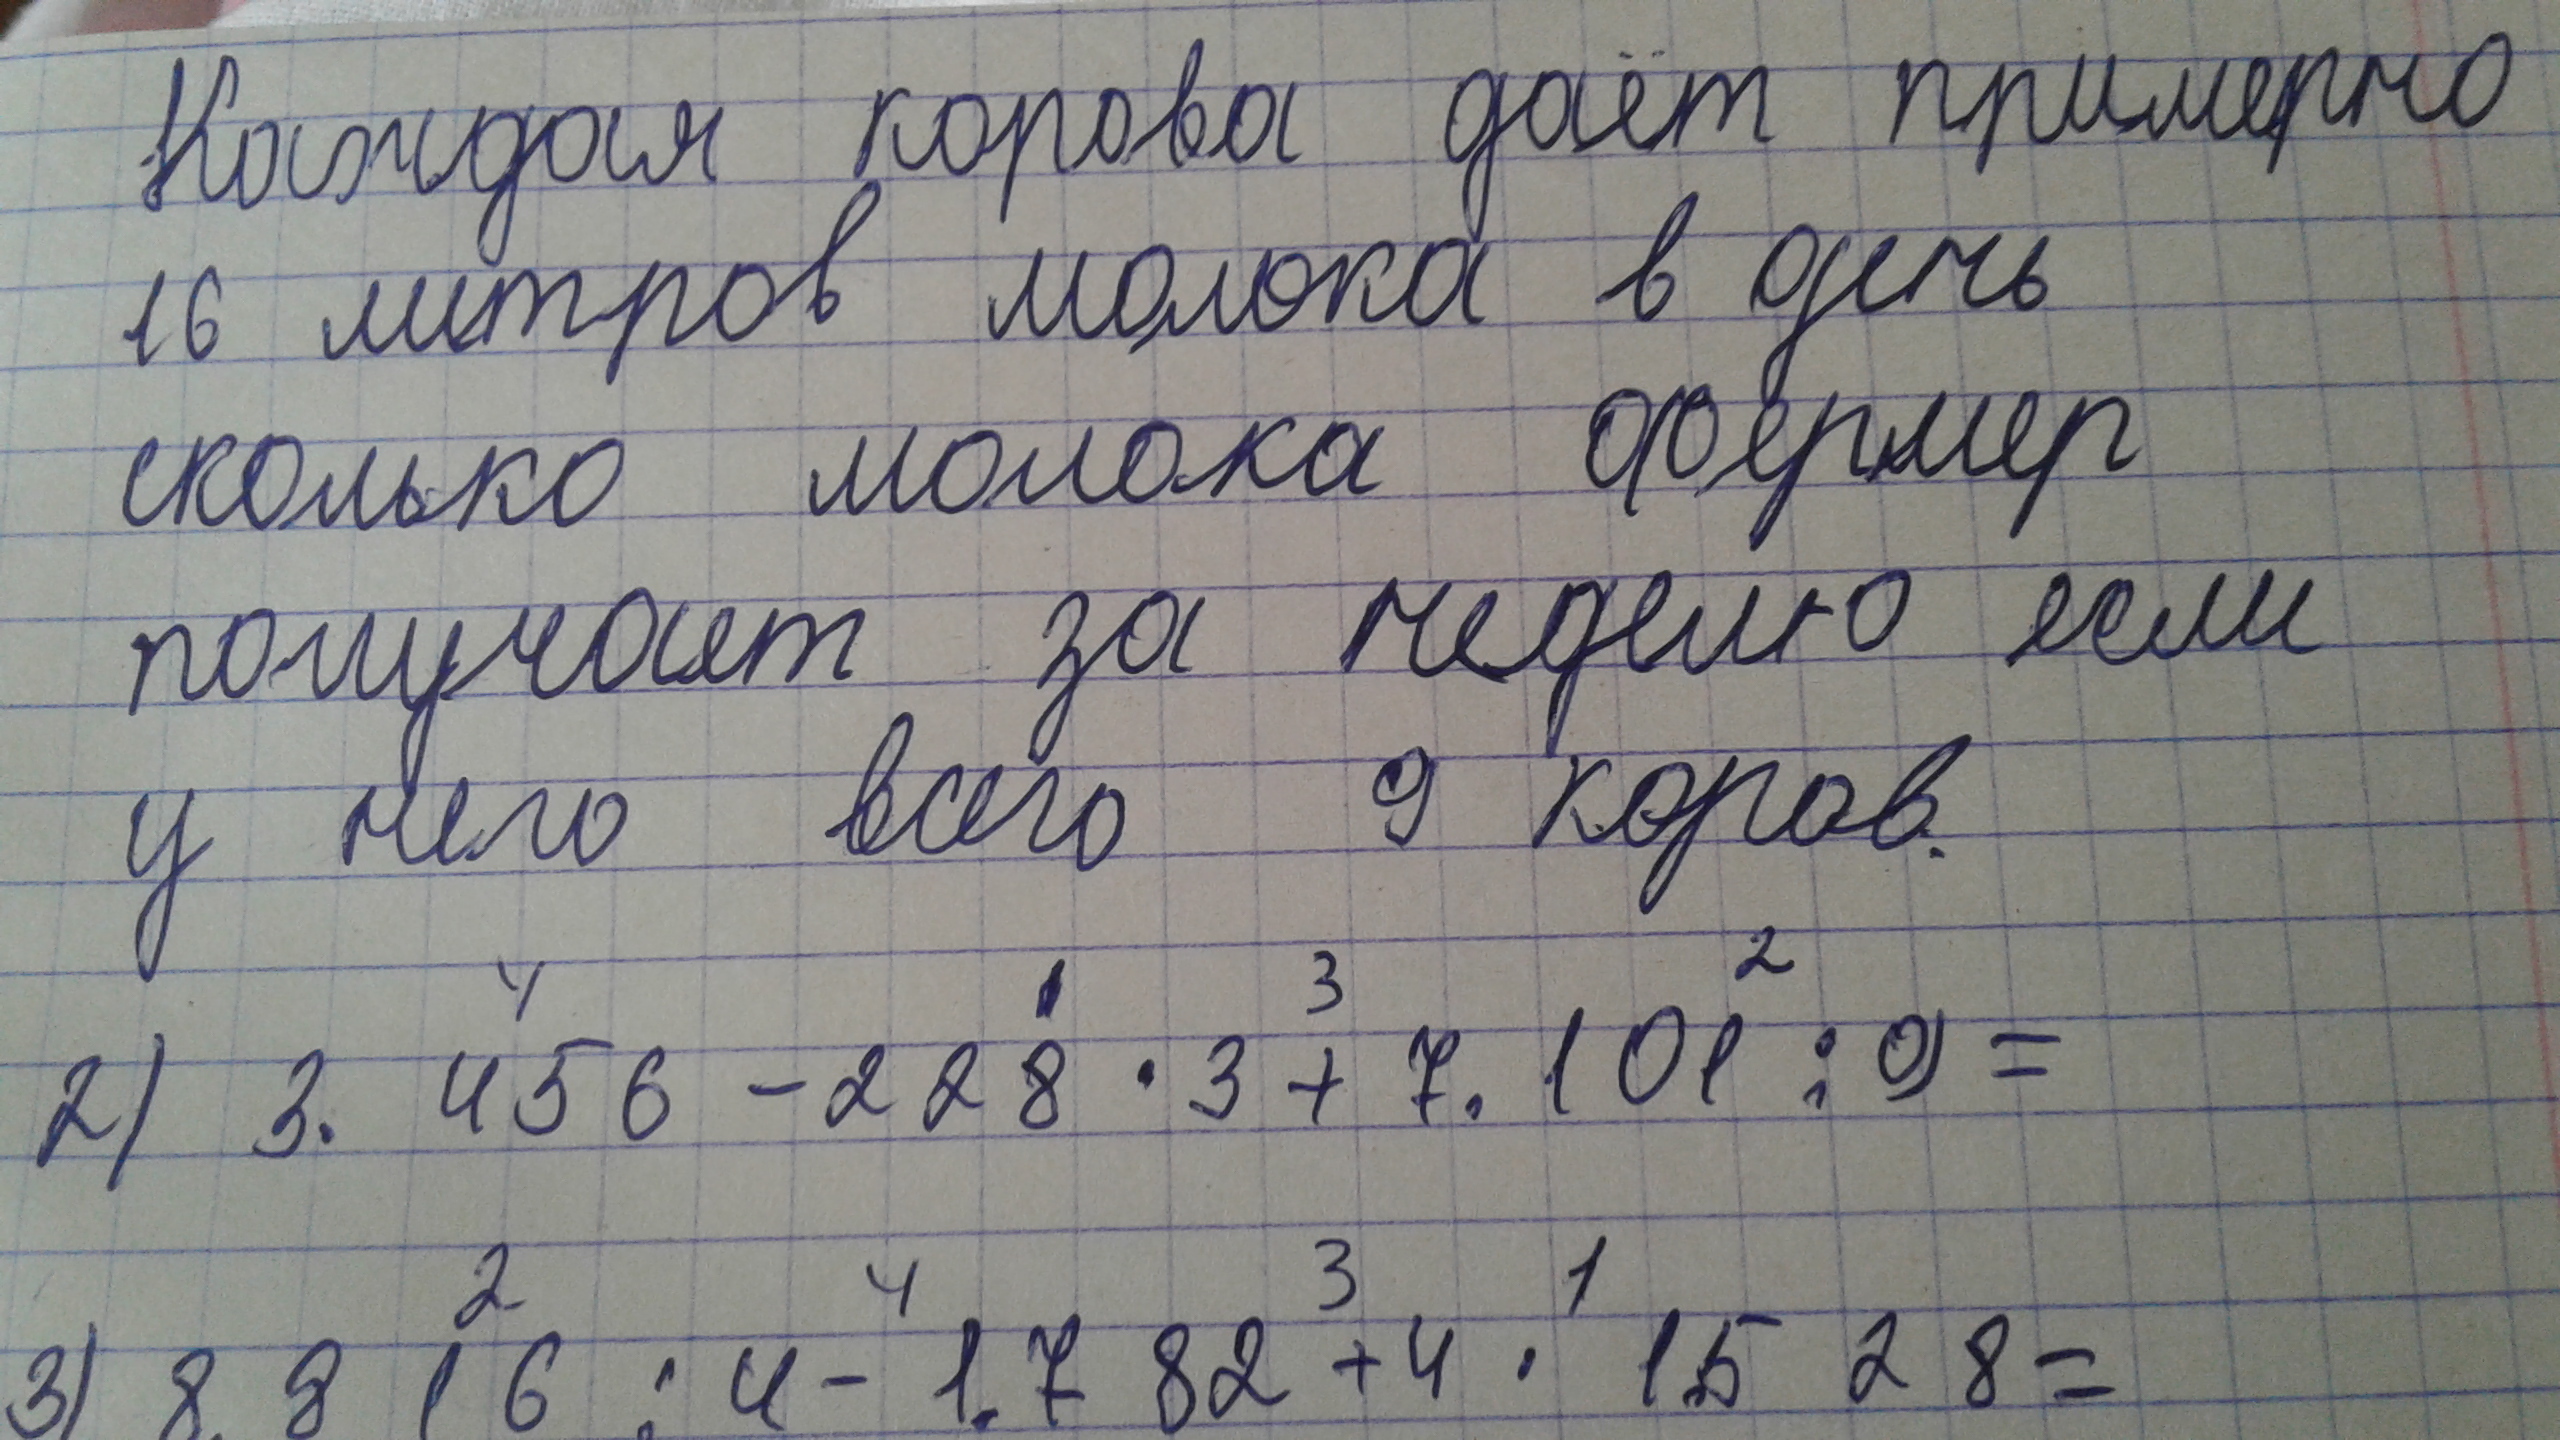 Каждая корова даёт примерно
16 литров молока в день
сколько молока фермер
получает за неделю если
у него всего 9 коров.
4 1 3 2
2) 3. 456 - 228 · 3 + 7. 101 : 9 =
2 4 3 1
3) 8. 816 : 4 - 1.782 + 4 · 1.528 =